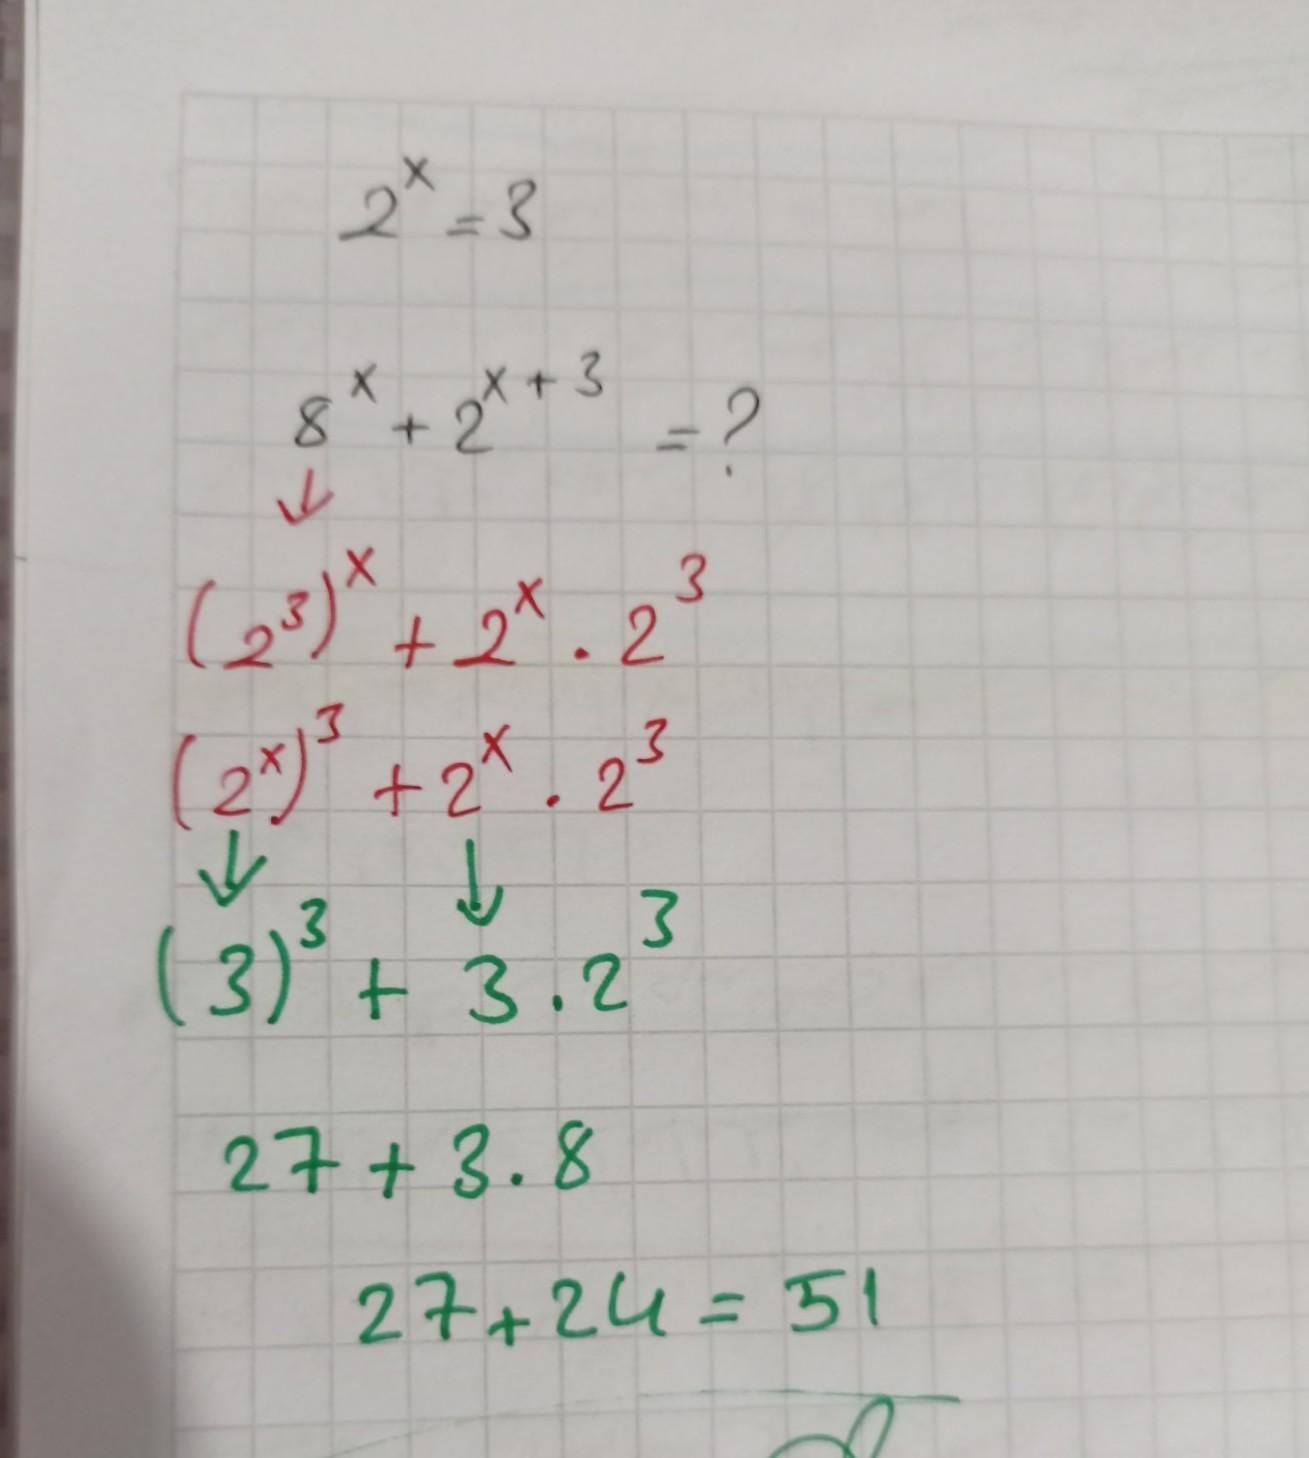 2^x = 3
8^x + 2^(x+3) = ?
↓
(2^3)^x + 2^x . 2^3
(2^x)^3 + 2^x . 2^3
↓ ↓
(3)^3 + 3 . 2^3
27 + 3 . 8
27 + 24 = 51